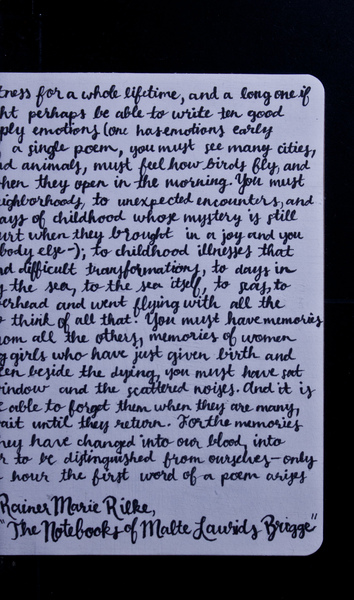 tness for a whole lifetime, and a long one if
ht perhaps be able to write ten good
ply emotions (one has emotions early
, a single poem, you must see many cities,
nd animals, must feel how birds fly, and
hen they open in the morning. You must
eighborhoods, to unexpected encounters, and
ays of childhood whose mystery is still
urt when they brought in a joy and you
body else—); to childhood illnesses that
nd difficult transformations, to days in
y the sea, to the sea itself, to seas, to
erhead and went flying with all the
o think of all that. You must have memories
rom all the others, memories of women
g girls who have just given birth and
een beside the dying, you must have sat
indow and the scattered noises. And it is
e able to forget them when they are many,
ait until they return. For the memories
hey have changed into our blood, into
r to be distinguished from ourselves—only
hour the first word of a poem arises
Rainer Marie Rilke,
"The Notebooks of Malte Laurids Brigge"